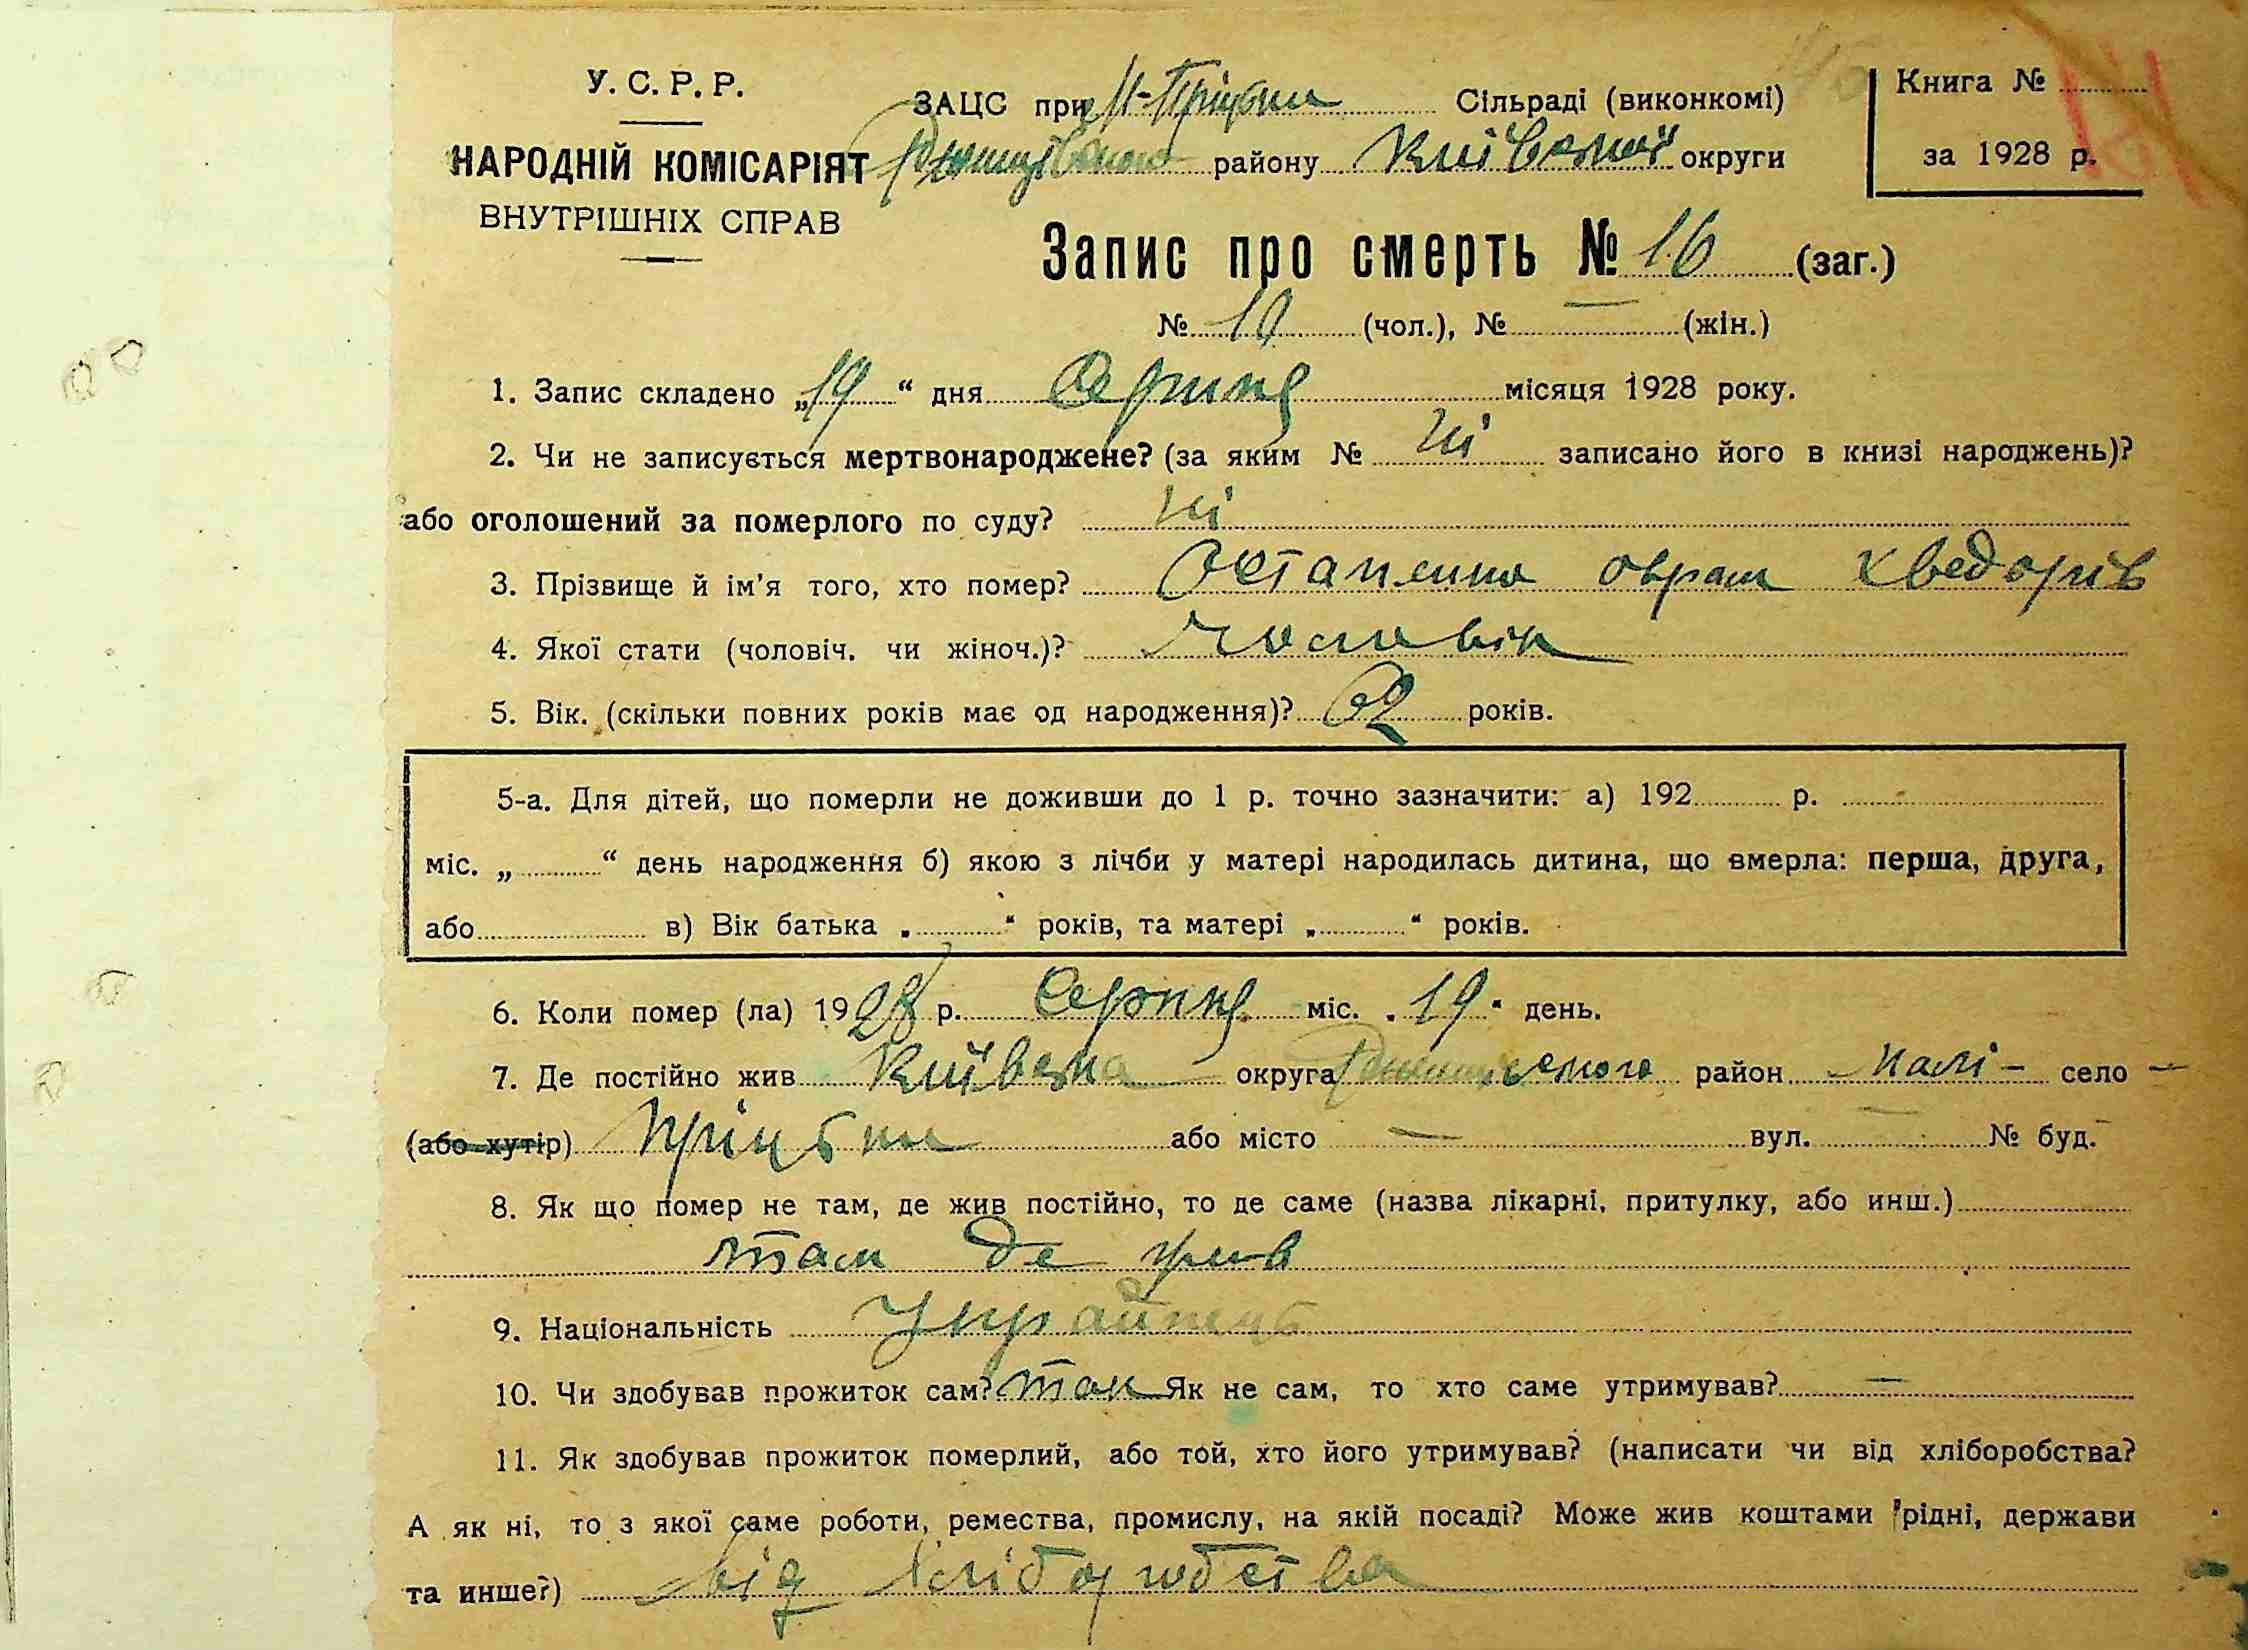 У. С. Р. Р.
НАРОДНІЙ КОМІСАРІЯТ
ВНУТРІШНІХ СПРАВ
ЗАЦС при М-Пріцьки Сільраді (виконкомі)
району Київської округи
Книга №
за 1928 р.
Запис про смерть № 16 (заг.)
№ 10 (чол.), № — (жін.)
1. Запис складено „19“ дня Серпня місяця 1928 року.
2. Чи не записується мертвонароджене? (за яким № ні записано його в книзі народжень)?
або оголошений за померлого по суду? ні
3. Прізвище й ім'я того, хто помер? Остапенко Оврам Хведорів
4. Якої стати (чоловіч. чи жіноч.)? Чоловік
5. Вік. (скільки повних років має од народження)? 62 років.
5-а. Для дітей, що померли не доживши до 1 р. точно зазначити: а) 192 р.
міс. „ “ день народження б) якою з лічби у матері народилась дитина, що вмерла: перша, друга,
або в) Вік батька „ “ років, та матері „ “ років.
6. Коли помер (ла) 1928 р. Серпня міс. „19“ день.
7. Де постійно жив Київська округа район Малі- село —
(або хутір) Пріцьки або місто — вул. — № буд.
8. Як що помер не там, де жив постійно, то де саме (назва лікарні, притулку, або инш.)
там де жив
9. Національність Українець
10. Чи здобував прожиток сам? так Як не сам, то хто саме утримував? —
11. Як здобував прожиток померлий, або той, хто його утримував? (написати чи від хліборобства?
А як ні, то з якої саме роботи, ремества, промислу, на якій посаді? Може жив коштами рідні, держави
та инше?) від хліборобства